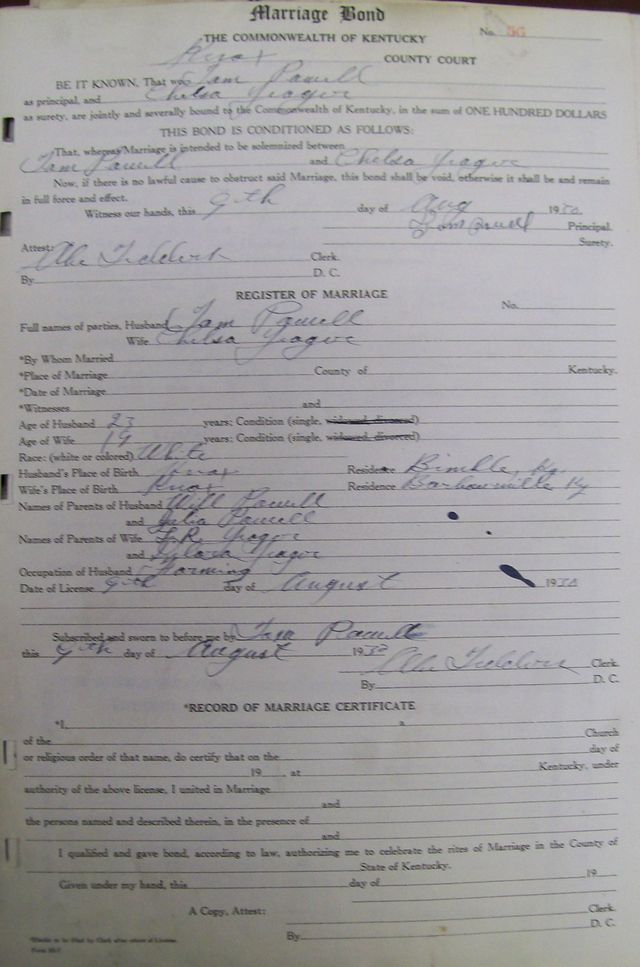 Marriage Bond
THE COMMONWEALTH OF KENTUCKY No. 56
Knox COUNTY COURT
BE IT KNOWN, That we Tam Powell
as principal, and Chelsa Yeager
as surety, are jointly and severally bound to the Commonwealth of Kentucky, in the sum of ONE HUNDRED DOLLARS
THIS BOND IS CONDITIONED AS FOLLOWS:
That, whereas Marriage is intended to be solemnized between
Tam Powell and Chelsa Yeager
Now, if there is no lawful cause to obstruct said Marriage, this bond shall be void, otherwise it shall be and remain
in full force and effect.
Witness our hands, this 9th day of Aug 19
Tam Powell Principal.
Surety.
Attest:
Clerk.
By D. C.
REGISTER OF MARRIAGE
No.
Full names of parties, Husband Tam Powell
Wife Chelsa Yeager
*By Whom Married
*Place of Marriage County of Kentucky.
*Date of Marriage
*Witnesses and
Age of Husband 23 years; Condition (single, widowed, divorced)
Age of Wife 19 years; Condition (single, widowed, divorced)
Race: (white or colored) White
Husband's Place of Birth Knox Residence Bimble, Ky.
Wife's Place of Birth Knox Residence Barbourville Ky
Names of Parents of Husband Will Powell
and Julia Powell
Names of Parents of Wife Yeager
and Yeager
Occupation of Husband Farming
Date of License 9th day of August 19
Subscribed and sworn to before me by Tam Powell
this 9th day of August 19 Clerk
By D. C.
*RECORD OF MARRIAGE CERTIFICATE
*I, a
of the Church
or religious order of that name, do certify that on the day of
19 , at Kentucky, under
authority of the above license, I united in Marriage
and
the persons named and described therein, in the presence of
and
I qualified and gave bond, according to law, authorizing me to celebrate the rites of Marriage in the County of
State of Kentucky.
Given under my hand, this day of 19
A Copy, Attest: Clerk.
By D. C.